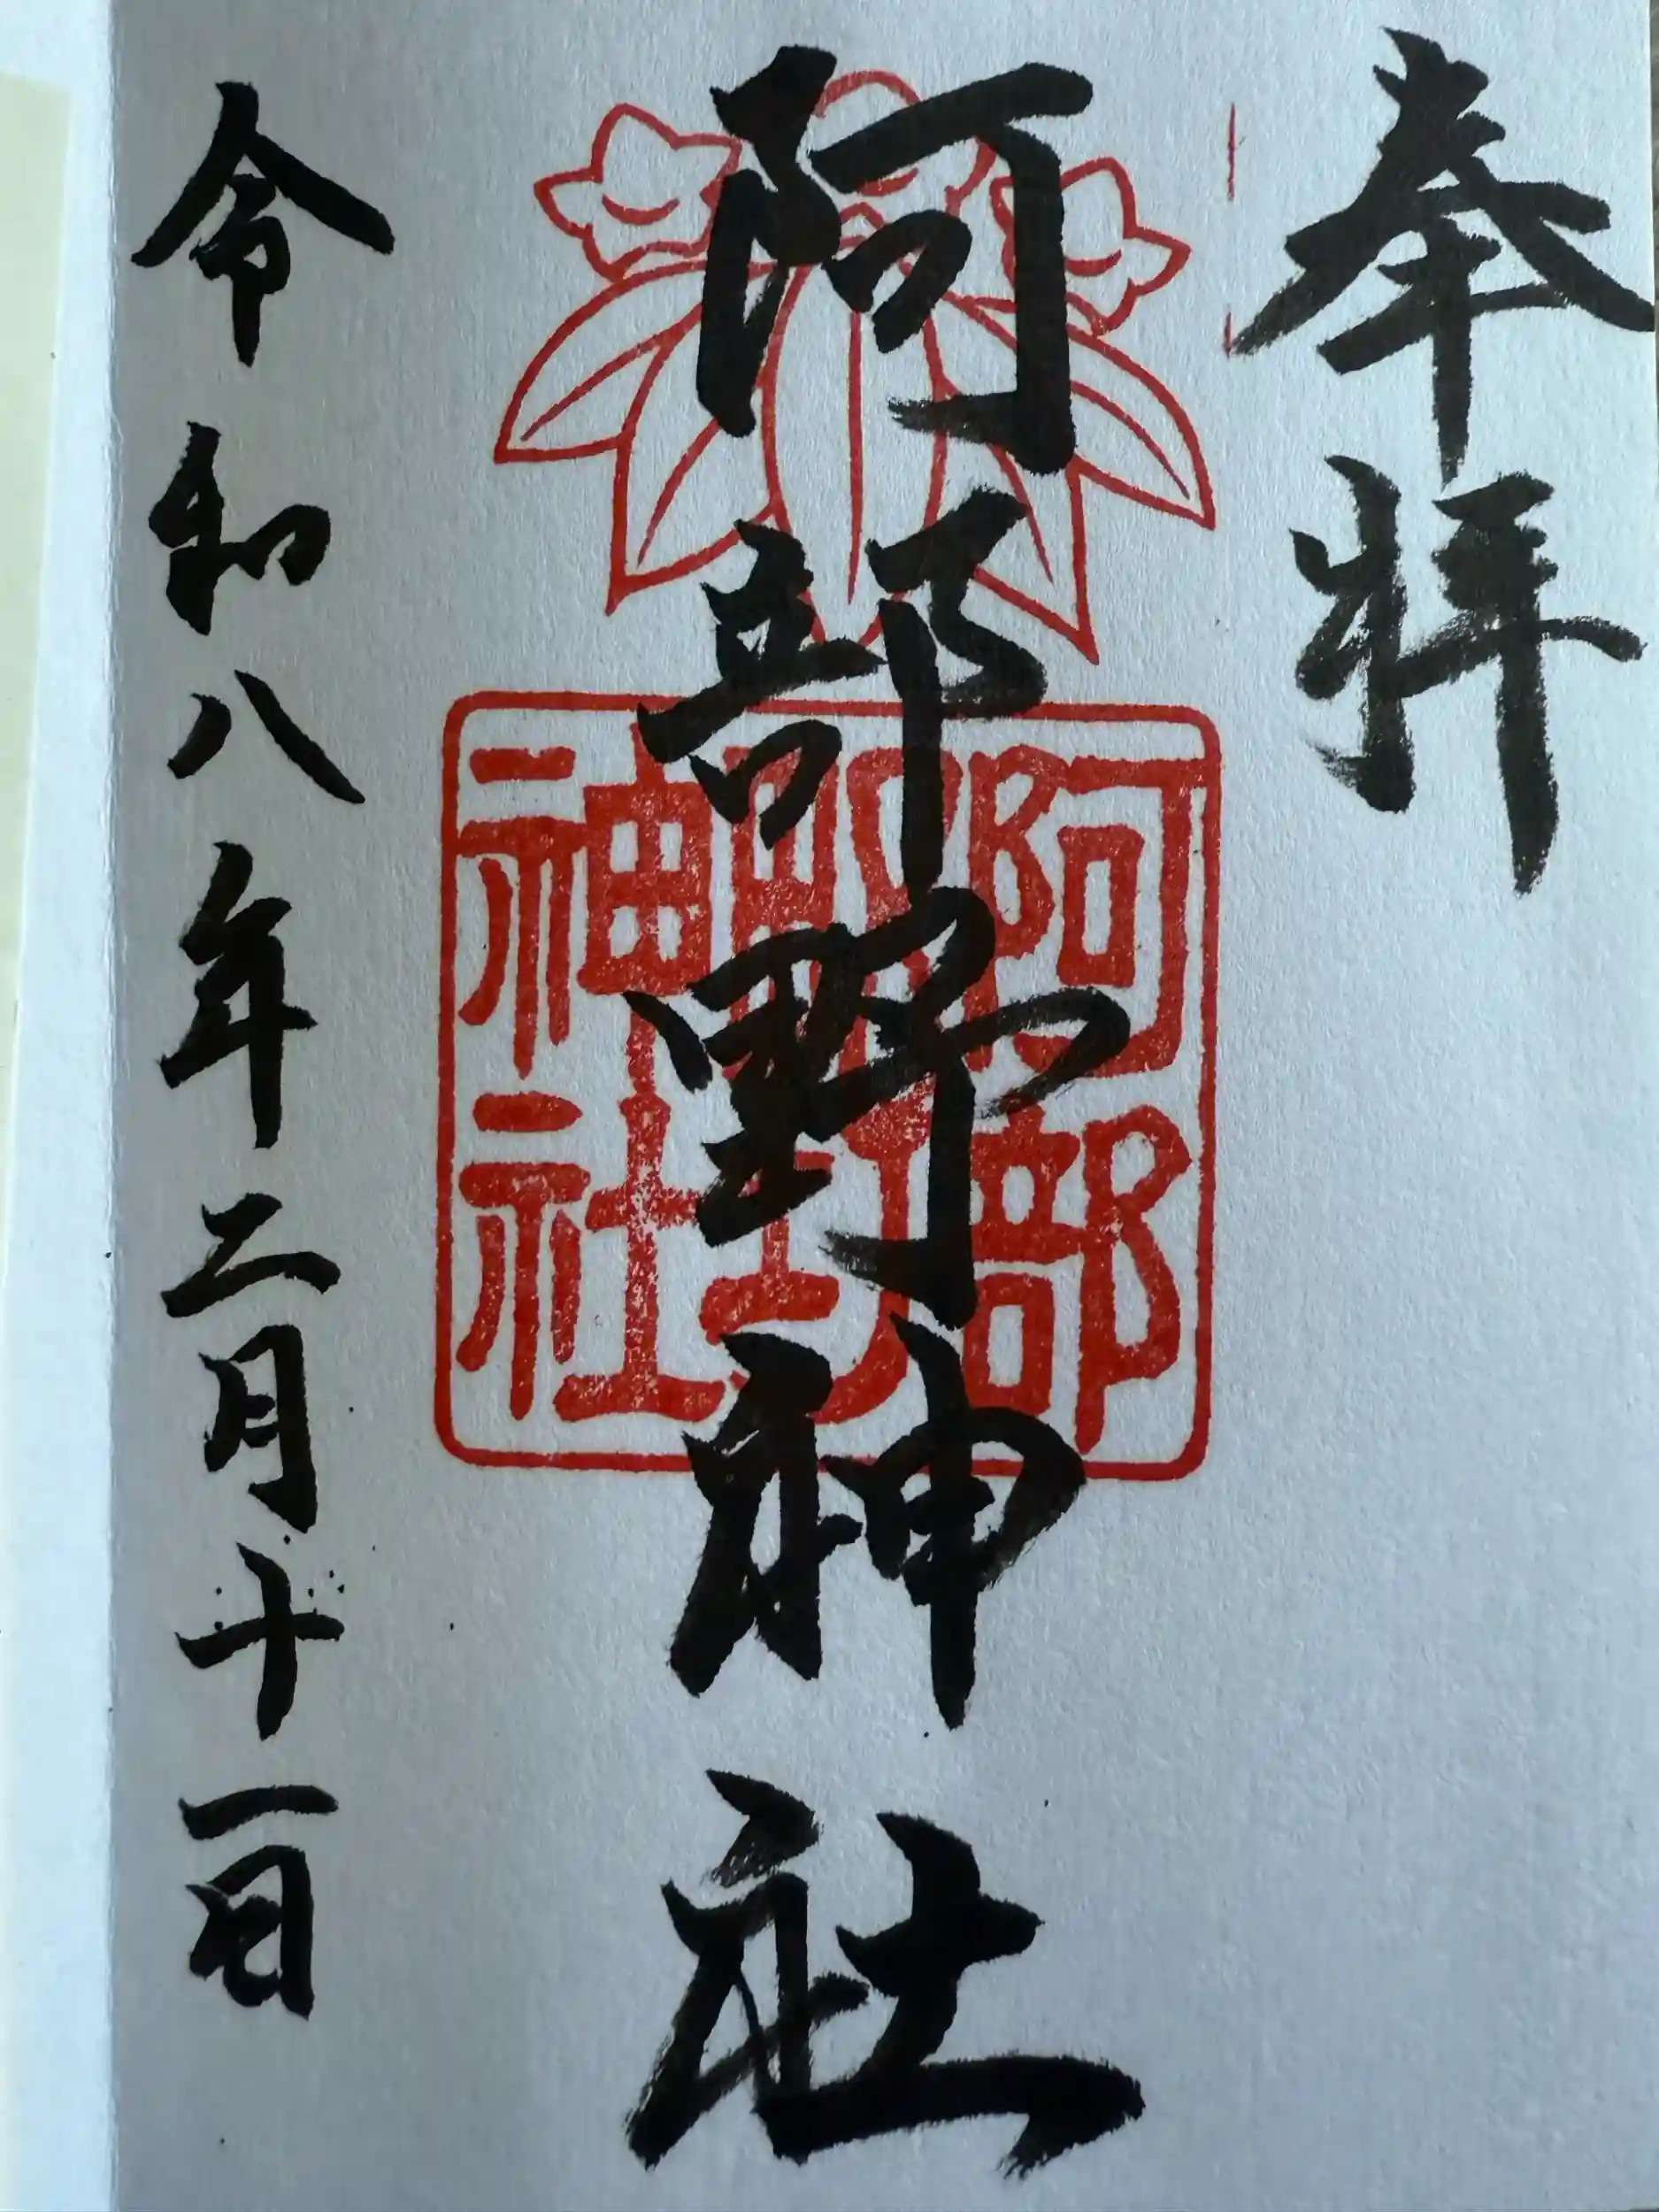 奉拝
阿部野神社
阿部野神社
令和八年二月十一日